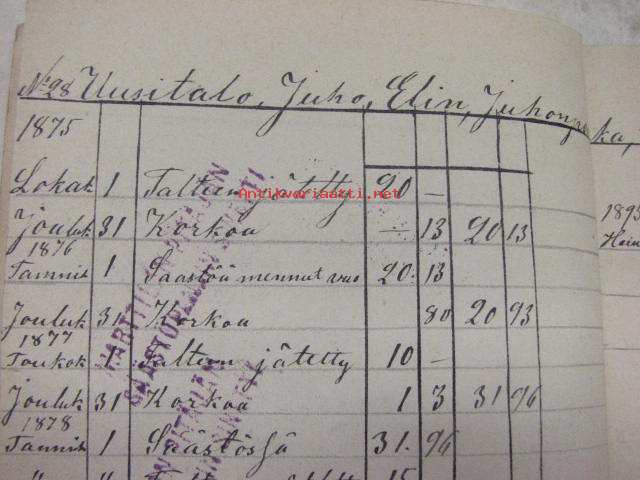 No 28 Uusitalo, Juho, Elin, Juhonp. ka,
1875
Lokak 1 Talteen jätetty 20 —
Jouluk 31 Korkoa — 13 20 13
1876
Tammik 1 Säästöä mennut vuo 20. 13
Jouluk 31 Korkoa 80 20 93
1877
Toukok 1 Talteen jätetty 10 —
Jouluk 31 Korkoa 1 3 31 96
1878
Tammik 1 Säästössä 31. 96
" "
15
1893
Hein
Antikvariaatti.net